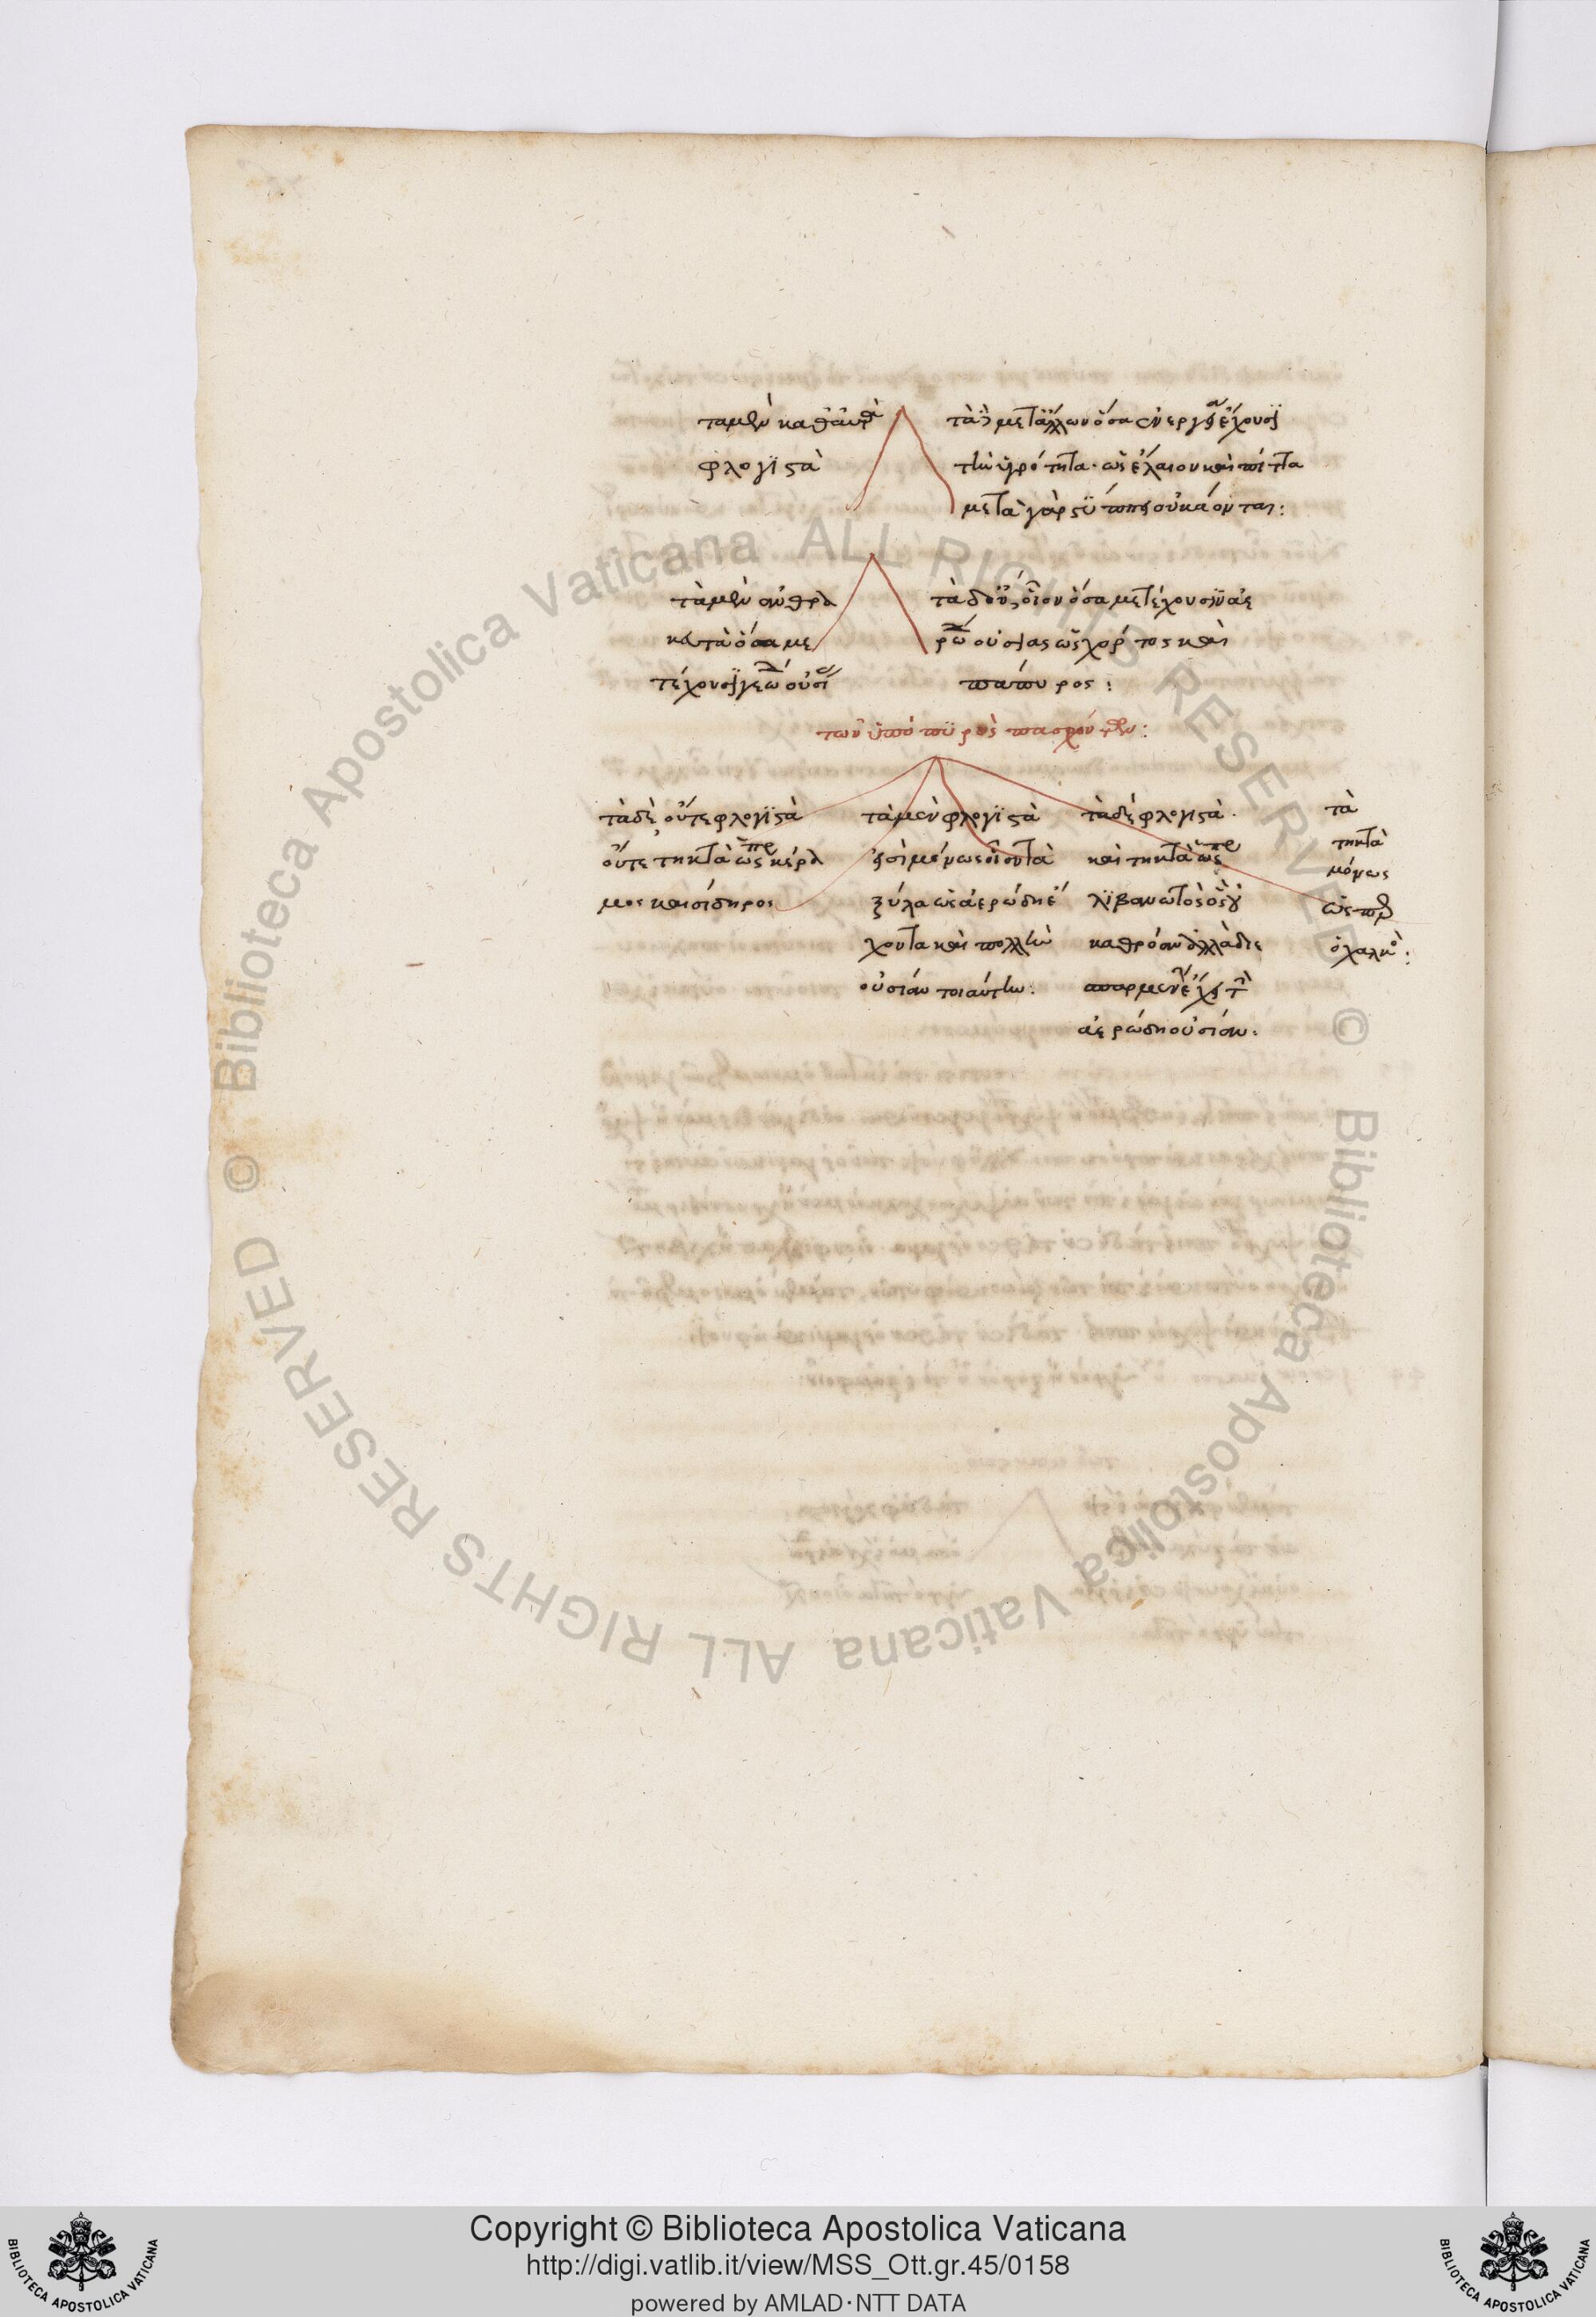 τὰ μὲν καθ' αὑτὰ
φλογιστὰ
τὰ δὲ μετ' ἄλλων ὅσα ἐνεργῆ ἔχουσι
τὴν ὑγρότητα· ὡς ἔλαιον καὶ πίττα
μετὰ γὰρ στύππης οὐ κάονται:
τὰ μὲν ἀνθρα
κευτὰ ὅσα με
τέχουσι γεώδους οὐσί
τὰ δ' οὔ, οἷον ὅσα μετέχουσιν ἀε
ρώδους οὐσίας ὡς χόρτος καὶ
πάπυρος:
τῶν ὑπὸ πυρὸς πασχόντων:
τὰ δὲ οὔτε φλογιστὰ
οὔτε τηκτὰ ὥσπερ κέρα
μος καὶ σίδηρος
τὰ μὲν φλογιστὰ
ἐστὶ μόνως οἷον τὰ
ξύλα ὡς ἀερώδη ἔ
χοντα καὶ πολλὴν
οὐσίαν τοιαύτην:
τὰ δὲ φλογιστὰ
καὶ τηκτὰ ὥσπερ
λιβανωτὸς
ἔχει τὴν
ἀερώδη οὐσίαν:
τὰ
τηκτὰ
μόνως
ὥσπερ
ὁ χαλκός:
Copyright © Biblioteca Apostolica Vaticana
http://digi.vatlib.it/view/MSS_Ott.gr.45/0158
powered by AMLAD·NTT DATA
BIBLIOTECA APOSTOLICA VATICANA
BIBLIOTECA APOSTOLICA VATICANA
© Biblioteca Apostolica Vaticana ALL RIGHTS RESERVED
© Biblioteca Apostolica Vaticana ALL RIGHTS RESERVED